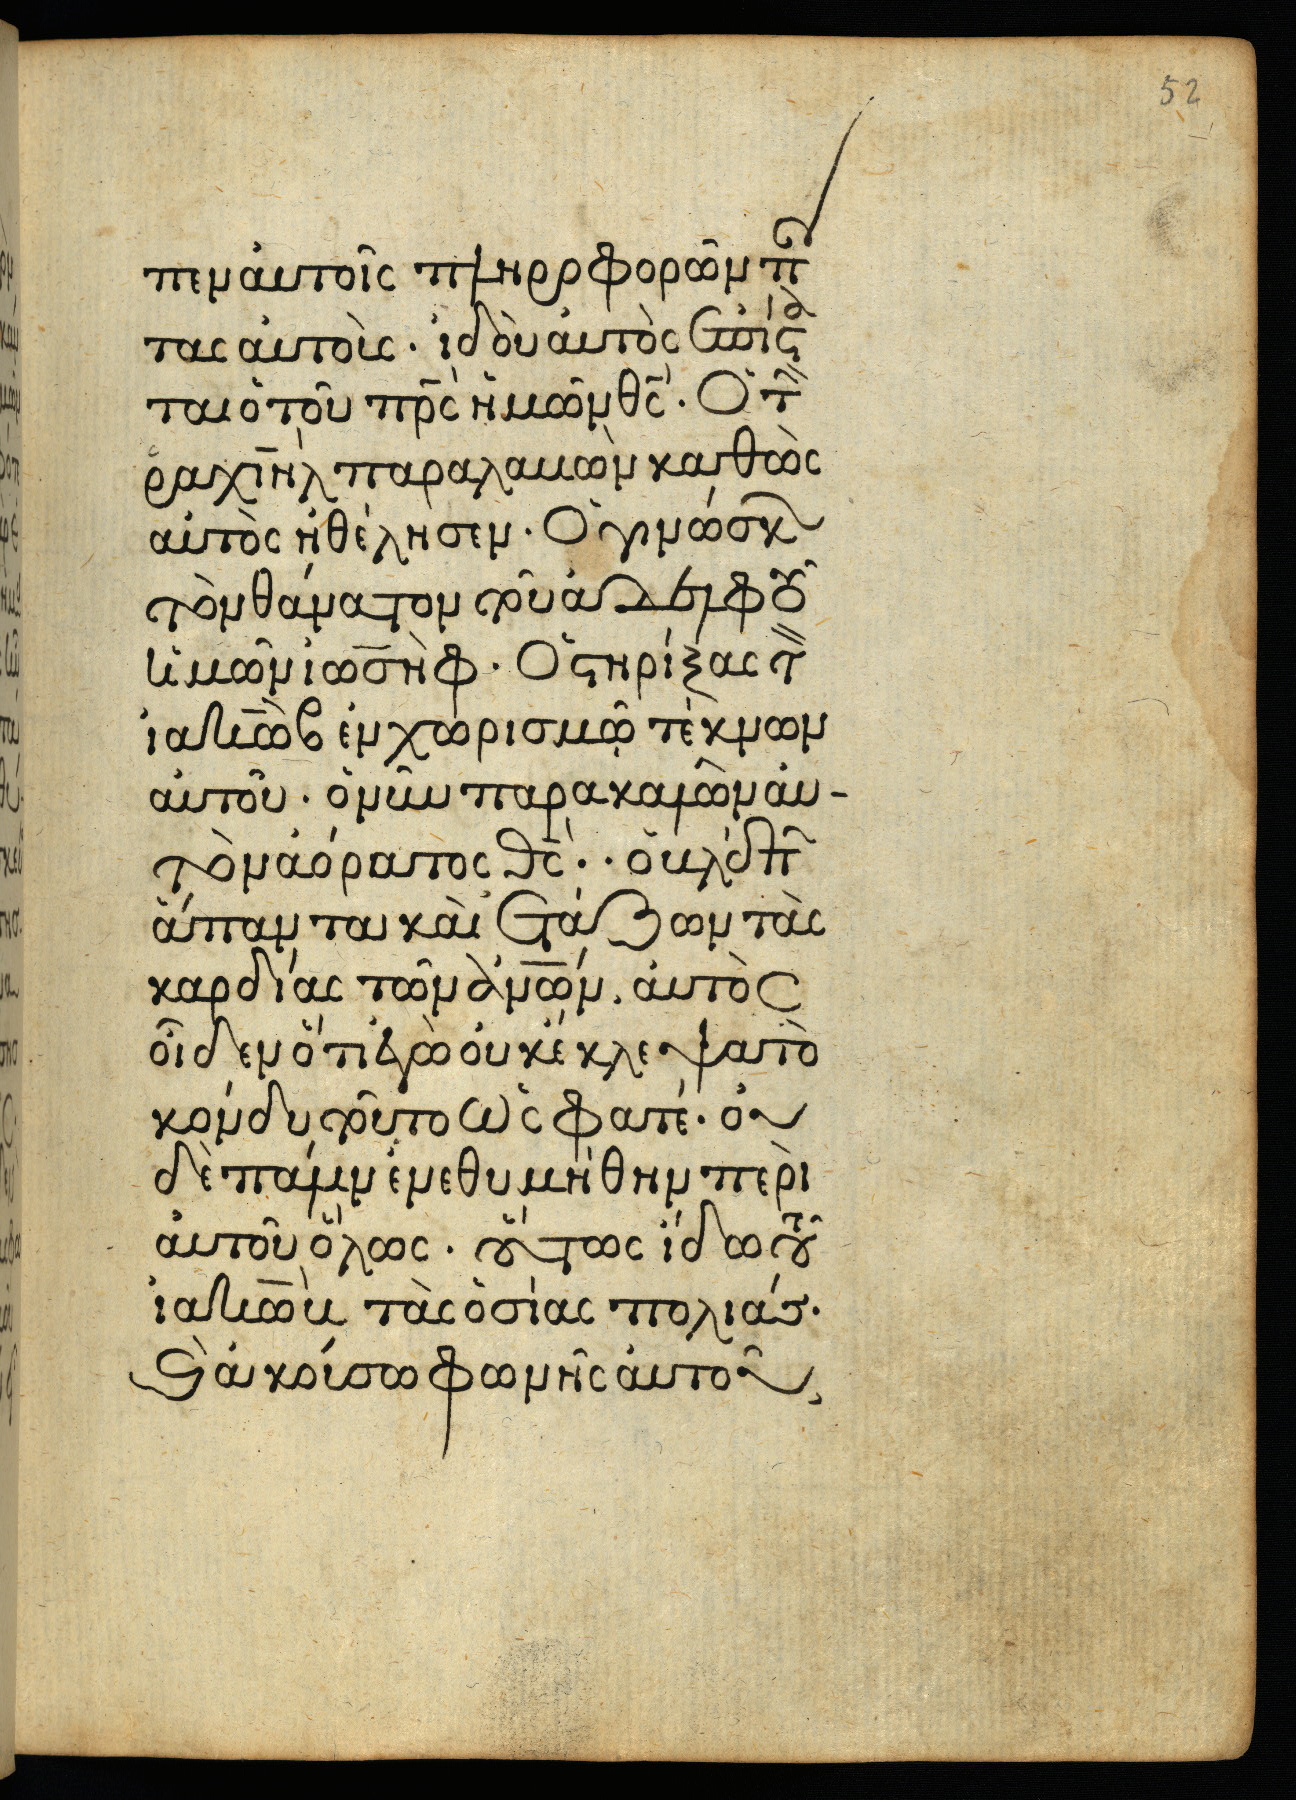 52
πεν αυτοῖς πληρροφορῶν π
τας αὐτοὺς · ἰδοὺ αὐτὸς ἐπίς
ται ὁ τοῦ πρ̅ς ἡμῶν θ̅ς · Ὁ τ
ραχιὴλ παραλαβὼν καθὼς
αὐτὸς ἠθέλησεν · Ὁ γινώσκ
τὸν θάνατον τοῦ ἀδελφοῦ
ὑμῶν ἰωσὴφ · Ὁ στηρίξας τ
ἰακὼβ ἐν χωρισμῷ τέκνων
αὐτοῦ · ὁ νῦν παρακαλῶν αὐ-
τὸν ἀόρατος θ̅ς · · ὁ βλέπ
ἅπανται καὶ ἐτάζων τὰς
καρδίας τῶν ἀν̅ων, αὐτὸς
οἶδεν ὅτι ἐγὼ οὐκ ἔκλεψα τὸ
κόνδυ τοῦτο ὥς φατέ · οὐ
δὲ πάλιν ἐνεθυμήθην περὶ
αὐτοῦ ὅλως · οὕτως ἴδω τοῦ
ἰακὼβ τὰς ὁσίας πολιάς ·
καὶ ἀκούσω φωνῆς αὐτοῦ,